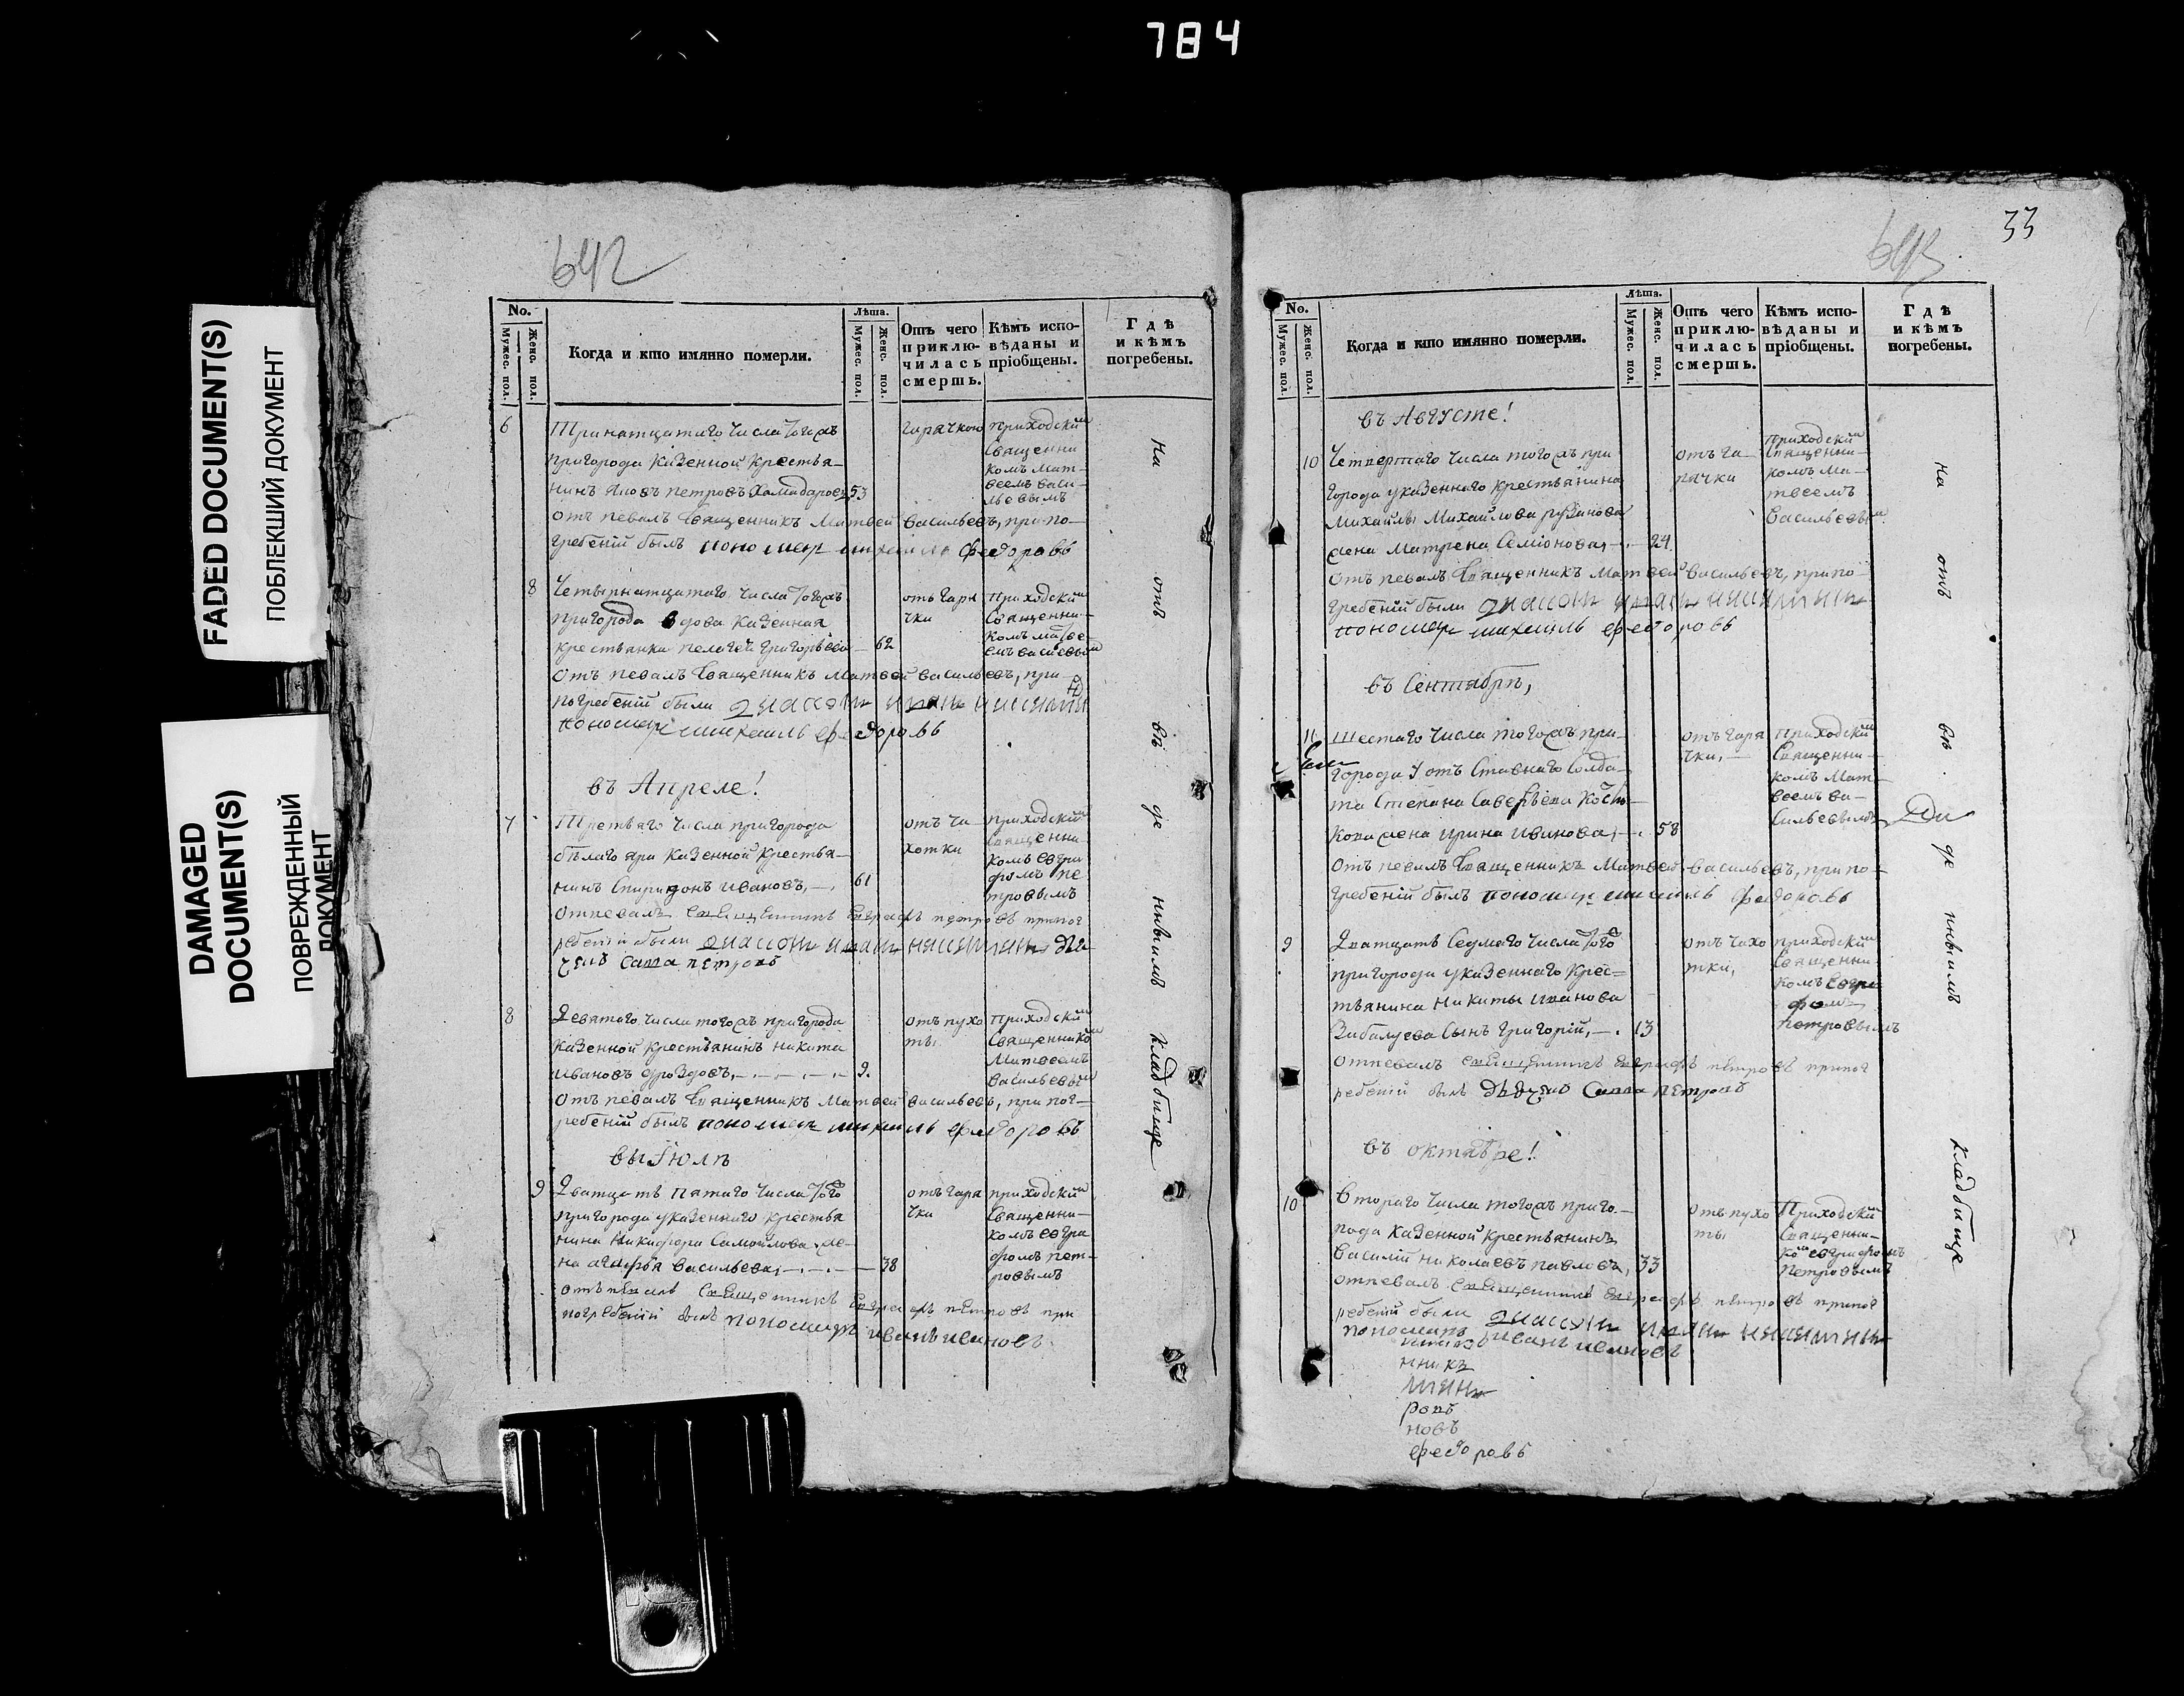 784
FADED DOCUMENT(S)
ПОБЛЕКШИЙ ДОКУМЕНТ
DAMAGED
DOCUMENT(S)
ПОВРЕЖДЕННЫЙ
ДОКУМЕНТ
642
No.
Мужес. пол.
Женс. пол.
Когда и кто имянно померли.
Лѣта.
Мужес. пол.
Женс. пол.
Отъ чего приклю-чилась смерть.
Кѣмъ испо-вѣданы и пріобщены.
Гдѣ и кѣмъ погребены.
6 Тринатцатаго числа тогожъ
пригорода казенной крестья-
нинъ Яковъ петровъ 53
гарячкою
приходским
Священни
комъ мат-
веемъ васи-
льевымъ
отъ певалъ Священникъ Матвей Васильевъ, при по-
гребеній былъ пономарь михаилъ федоровъ
8 Четырнатцатаго числа тогожъ
пригорода вдова казенная
крестьянка пелагея григорьева 62
отъ гаря
чки
приходским
Священни-
комъ матве-
емъ васильевым
отъ певалъ Священникъ Матвей васильевъ, при
погребеній были дьяконъ иванъ никитинъ
пономарь михаилъ федоровъ
въ Апреле!
7 Третьяго числа пригорода
бѣлаго яра казенной крестья-
нинъ Спиридонъ ивановъ, 61
отъ ча
хотки
приходским
Священни
комъ евгра
фомъ пе
тровымъ
отпевалъ Священникъ Евграфъ петровъ припог
ребеніи были дьяконъ иванъ никитинъ дья
чекъ Савва петровъ
8 Девятаго числа тогожъ пригорода
казенной крестьянинъ никита
ивановъ дроздовъ, 9.
отъ пухо
ты
приходским
Священнико
Матвеемъ
васильевым
отъ певалъ Священникъ Матвей васильевъ, при пог-
ребеній былъ пономарь михаилъ федоровъ
въ Июлѣ
9 Дватцать пятаго числа того
пригорода указеннаго крестья
нина Никифора Самойлова же-
на агафья васильева, 38
отъ гаря
чки
приходским
Священни-
комъ евгра
фомъ пет-
ровымъ
отъ певалъ Священникъ Евграфъ петровъ при
погребеніи былъ пономарь иванъ ивановъ
на
отъ
въ
де
нномъ
кладбище
643
33
No.
Мужес. пол.
Женс. пол.
Когда и кто имянно померли.
Лѣта.
Мужес. пол.
Женс. пол.
Отъ чего приклю-чилась смерть.
Кѣмъ испо-вѣданы и пріобщены.
Гдѣ и кѣмъ погребены.
въ Августе!
10 Четвертаго числа тогожъ при
города указеннаго крестьянина
Михайлы Михайлова рузанова
жена Матрена Семіонова, 24
отъ га-
рячки
приходским
Священни-
комъ ма-
твеемъ
Васильевым
отъ певалъ Священникъ Матвей васильевъ, при по-
гребеній были дьяконъ иванъ никитинъ
пономарь михаилъ федоровъ
въ Сентябрѣ,
11 Шестаго числа тогожъ при-
города у отъ Ставнаго Солда-
та Степана Савельева Кость-
кова жена ирина ивинова, 58
отъ гаря
чки,
приходским
Священни-
комъ Мат-
веемъ ва-
сильевымъ
отъ певалъ Священникъ Матвей васильевъ, при по-
гребеній былъ пономарь михаилъ федоровъ
9 Дватцать Седмаго числа того
пригорода указеннаго крес=
тьянина никиты иванова
Забалуева сынъ григорій, 13
отъ чахо
тки,
приходским
Священни
комъ евгра
фомъ
петровымъ
отпевалъ Священникъ Евграфъ петровъ припог
ребеніи былъ дьячекъ Савва петровъ
въ октябре!
10 Втораго числа тогожъ приго-
рода казенной крестьянинъ
Василій николаевъ павловъ, 33
отъ пухо
ты
Приходским
Священни-
ко евграфомъ
петровымъ
отпевалъ Священникъ Евграфъ петровъ припог
ребеніи были дьяконъ иванъ никитинъ
пономарь иванъ ивановъ
никъ
тинъ
ровъ
новъ
федоровъ
на
отъ
въ
де
нномъ
кладбище